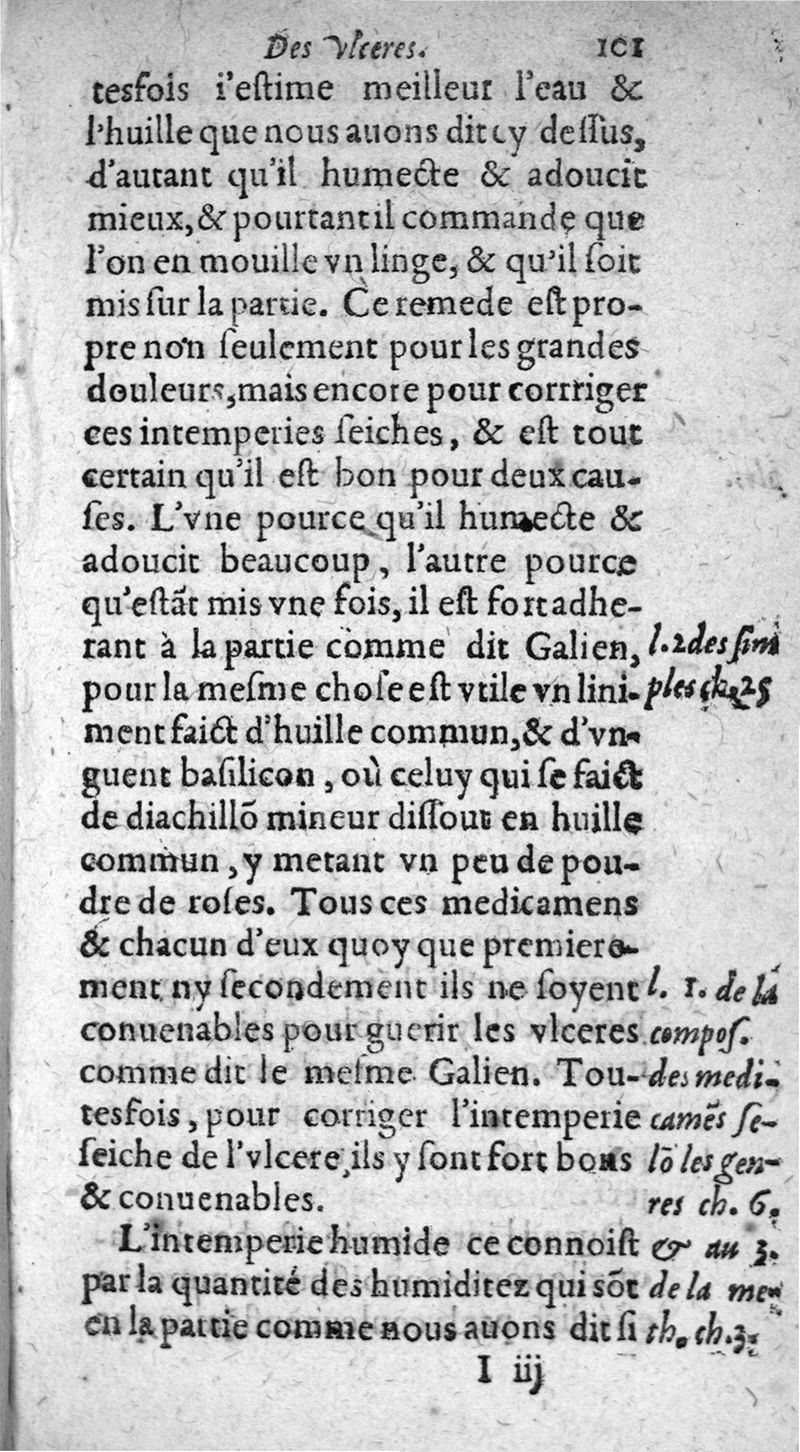 Des Vlceres. 101
tesfois i'eſtime meilleur l'eau &
l'huille que nous auons dit cy deſſus,
d'autant qu'il humecte & adoucit
mieux, & pourtant il commande que
l'on en mouille vn linge, & qu'il ſoit
mis ſur la partie. Ce remede eſt pro-
pre non ſeulement pour les grandes
douleurs, mais encore pour corrriger
ces intemperies ſeiches, & eſt tout
certain qu'il eſt bon pour deux cau-
ſes. L'vne pource qu'il humecte &
adoucit beaucoup, l'autre pource
qu'eſtãt mis vne fois, il eſt fort adhe-
rant à la partie comme dit Galien,
l. 2 des ſim
pour la meſme choſe eſt vtile vn lini-
ples ch. 25
ment faict d'huille commun, & d'vn-
guent baſilicon, où celuy qui ſe faict
de diachillõ mineur diſſout en huille
commun, y metant vn peu de pou-
dre de roſes. Tous ces medicamens
& chacun d'eux quoy que premiere-
ment ny ſecondement ils ne ſoyent
l. 1. de la
conuenables pour guerir les vlceres
compoſ.
comme dit le meſme Galien. Tou-
des medi-
tesfois, pour corriger l'intemperie
camẽs ſe-
ſeiche de l'vlcere, ils y ſont fort bons
lõ les gen-
& conuenables.
res ch. 6.
L'intemperie humide ce connoiſt
& au 3.
par la quantité des humiditez qui sõt
de la me-
en la partie comme nous auons dit ſi
th. ch. 3.
I iij